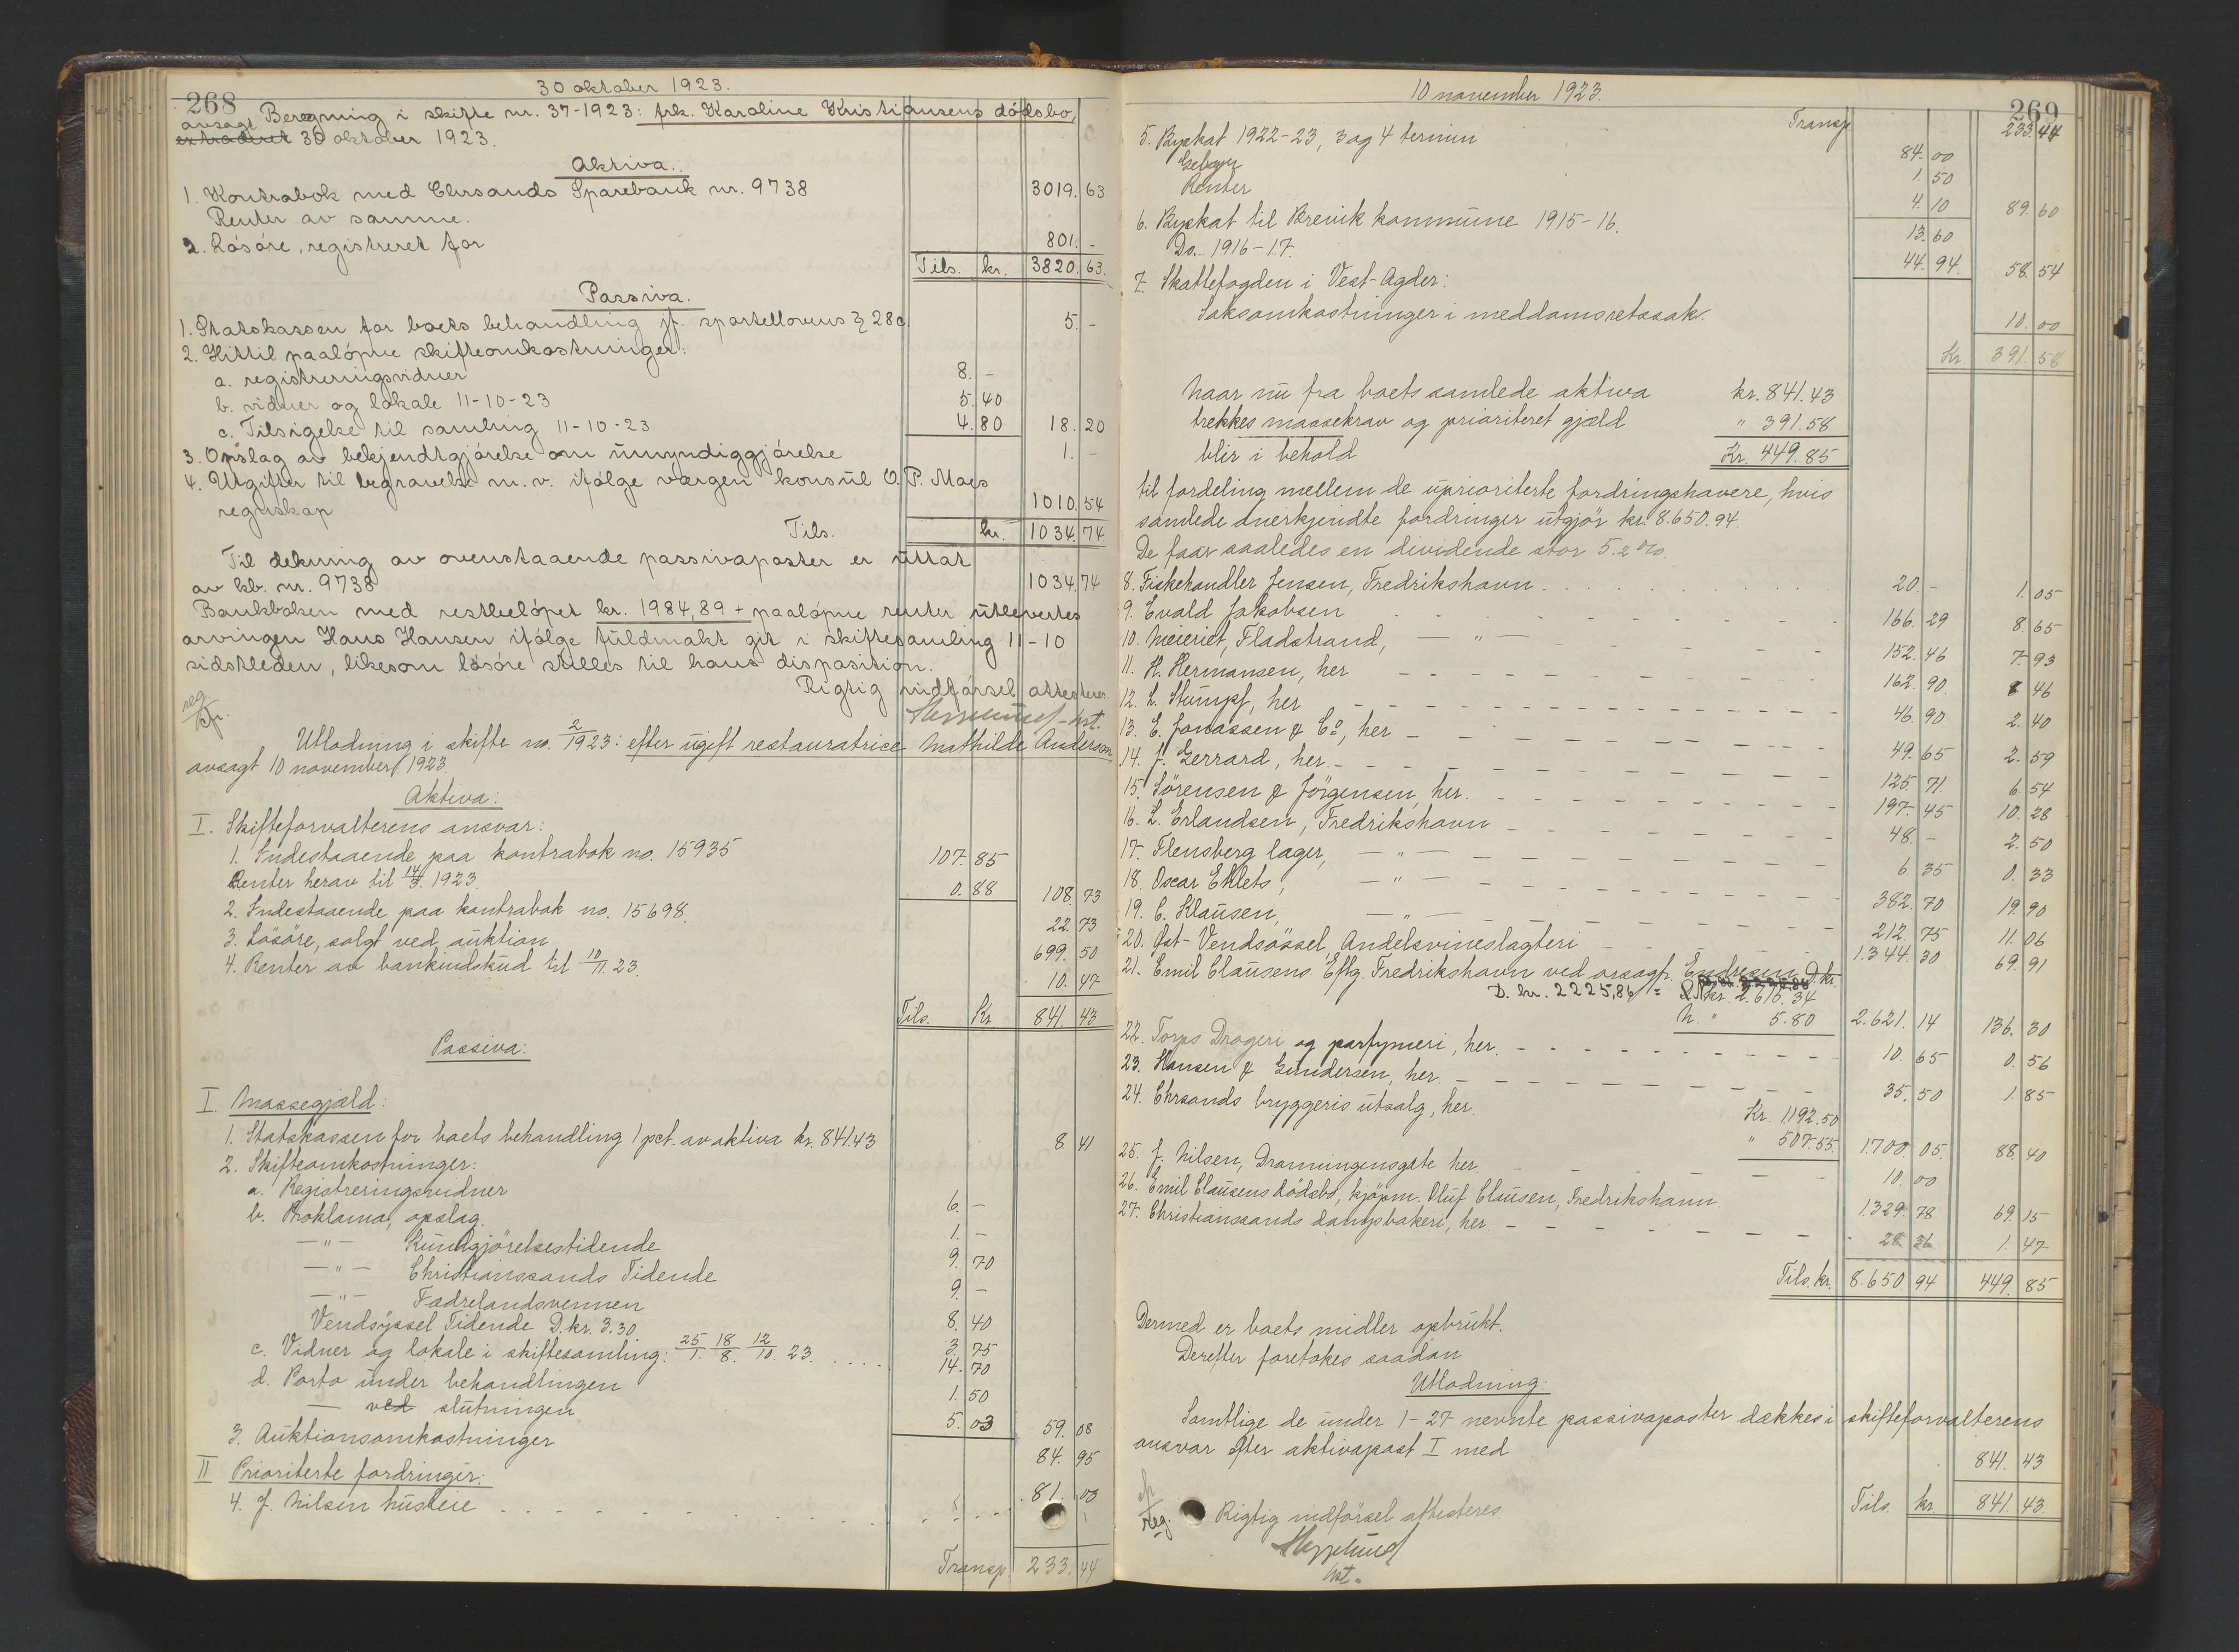 268
30 oktober 1923.
Beregning i skifte nr. 37-1923: frk. Karoline Kristiansens dödsbo,
avsagt
extraderet 30 oktober 1923.
Aktiva.
1. Kontrabok med Chrsands Sparebank nr. 9738 3019. 63
Renter av samme.
2. Lösöre, registreret for 801. -
Tils. kr. 3820. 63.
Passiva.
1. Statskassen for boets behandling jf. sportellovens § 28c 5. -
2. Hittil paalöpne skifteomkostninger:
a. registreringsvidner 8. -
b. vidner og lokale 11-10-23 5. 40
c. Tilsigelse til samling 11-10-23 4. 80 18. 20
3. Opslag av bekjendtgjörelse om umyndiggjörelse 1. -
4. Utgifter til begravelse m. v. ifölge værgen konsul O. P. Moes
regnskap 1010. 54
Tils. kr. 1034. 74
Til dekning av ovenstaaende passivaposter er uttat
av kb. nr. 9738 1034. 74
Bankboken med restbelöpet kr. 1984,89 + paalöpne renter utlevertes
arvingen Hans Hansen ifölge fuldmakt git i skiftesamling 11-10
sidstleden, likesom lösöre stilles til hans disposition.
Rigtig indförsel attesteres
reg
cfr.
Utlodning i skifte no. 2/1923: efter ugift restauratrice Mathilde Anderson,
avsagt 10 november 1923.
Aktiva:
I. Skifteforvalterens ansvar:
1. Indestaaende paa kontrabok no. 15935 107. 85
Renter herav til 14/3. 1923. 0. 88 108. 73
2. Indestaaende paa kontrabok no. 15698. 22. 73
3. Lösöre, solgt ved auktion 699. 50
4. Renter av bankindskud til 10/11. 23. 10. 47
Tils. Kr 841. 43
Passiva:
I. Massegjæld:
1. Statskassen for boets behandling 1 pct. av aktiva kr. 841.43 8. 41
2. Skifteomkostninger:
a. Registreringsvidner 6. -
b. Proklama, opslag. 1. -
— " — Kundgjörelsestidende 9. 70
— " — Christianssands Tidende 9. -
— " — Fædrelandsvennen 8. 40
Vendsyssel Tidende D. kr. 3.30. 3. 75
c. Vidner og lokale i skiftesamling: 25/1. 18/8. 12/10. 23. .... 14. 70
d. Porto under behandlingen 1. 50
— ved slutningen 5. 03 59. 08
3. Auktionsomkostninger 84. 95
II Prioriterte fordringer:
4. J. Nilsen husleie 81. 00
Transp. 233. 44
10 november 1923.
269
Transp 233. 44
5. Byskat 1922-23, 3 og 4 termin 84. 00
Gebyr 1. 50
Renter 4. 10 89. 60
6. Byskat til Brevik kommune 1915-16. 13. 60
Do. 1916-17. 44. 94. 58. 54
7. Skattefogden i Vest-Agder:
Saksomkostninger i meddomsretssak. 10. 00
Kr 391. 58
Naar nu fra boets samlede aktiva kr. 841.43
trekkes massekrav og prioriteret gjæld " 391.58
blir i behold Kr. 449.85
til fordeling mellem de uprioriterte fordringshavere, hvis
samlede anerkjendte fordringer utgjör kr. 8.650.94.
De faar saaledes en dividende stor 5.2 %.
8. Fiskehandler Jensen, Fredrikshavn 20. - 1. 05
9. Evald Jakobsen 166. 29 8. 65
10. Meieriet, Fladstrand, — " — 152. 46 7. 93
11. H. Hermansen, her 162. 90. 8 46
12. L. Stumpf, her 46. 90 2. 40
13. E. Jonassen & Co, her 49. 65 2. 59
14. J. Gerrard, her. 125. 71. 6. 54
15. Sörensen & Jörgensen, her. 197. 45 10. 28
16. L. Erlandsen, Fredrikshavn 48. - 2. 50
17. Flensberg lager, — " — 6. 35 0. 33
18. Oscar Ehlets, — " — 382. 70 19. 90
19. C. Klausen, — " — 212. 75 11. 06
20. Øst-Vendsössel Andelsvineslagteri 1.344. 30 69. 91
21. Emil Clausens Eftg. Fredrikshavn ved orsagf. Endresen D. kr.
D. kr. 2225,86 = N kr. 2.615.34
N. " 5.80 2.621. 14 136. 30
22. Torps Drogeri og parfymeri, her. 10. 65 0. 56
23. Hansen & Gundersen, her. 35. 50 1. 85
24. Chrsands bryggeris utsalg, her. Kr. 1192.50
" 507.55. 1700. 05. 88. 40
25. J. Nilsen, Dronningensgate her. 10. 00
26. Emil Clausens dödsbo, kjöpm. Oluf Clausen, Fredrikshavn. 1.329. 78 69. 15
27. Christianssands dampbakeri, her 28. 36 1. 47
Tils. kr. 8.650 94 449. 85
Dermed er boets midler opbrukt.
Derefter foretokes saadan
Utlodning:
Samtlige de under 1-27 nevnte passivaposter dækkes i skifteforvalterens
ansvar efter aktivapost I med 841. 43
Tils. kr. 841. 43
cfr
reg. Rigtig indförsel attesteres.